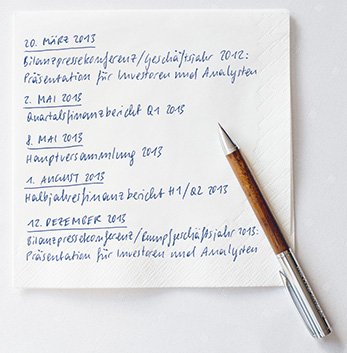 20. MÄRZ 2013
Bilanzpressekonferenz/Geschäftsjahr 2012:
Präsentation für Investoren und Analysten
2. MAI 2013
Quartalsfinanzbericht Q1 2013
8. MAI 2013
Hauptversammlung 2013
1. AUGUST 2013
Halbjahresfinanzbericht H1/Q2 2013
12. DEZEMBER 2013
Bilanzpressekonferenz/Rumpfgeschäftsjahr 2013:
Präsentation für Investoren und Analysten